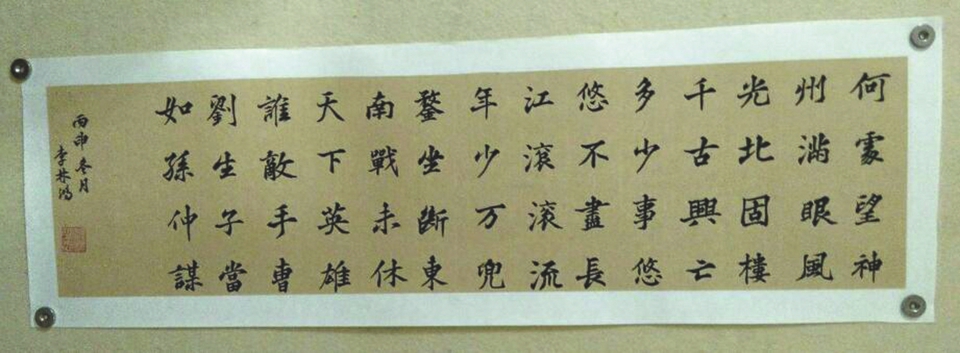 何處望神
州滿眼風
光北固樓
千古興亡
多少事悠
悠不盡長
江滾滾流
年少万兜
鍪坐斷東
南戰未休
天下英雄
誰敵手曹
劉生子當
如孫仲謀
丙申冬月
李林鴻